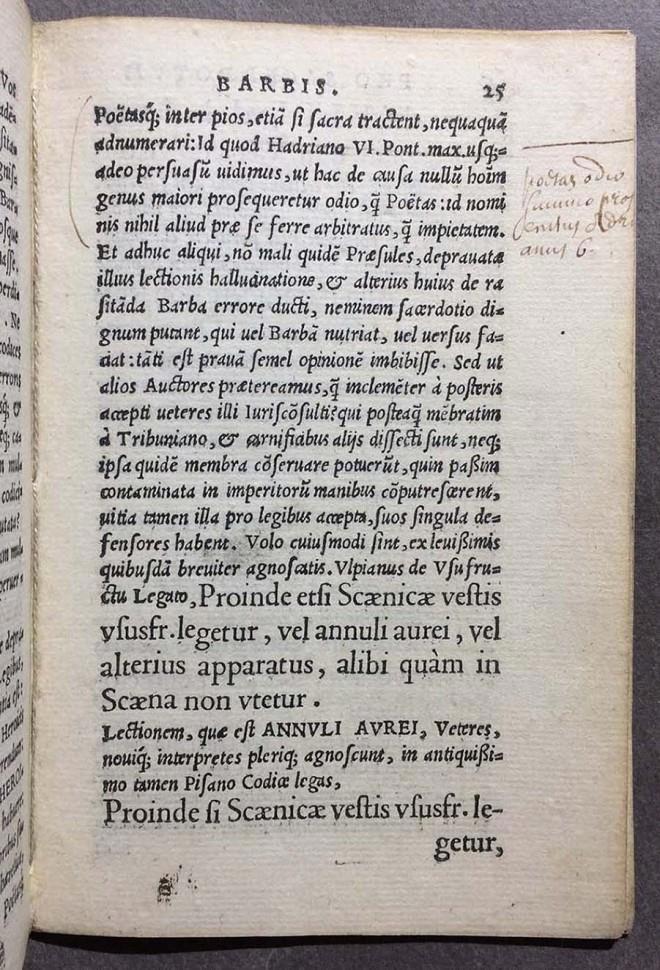 BARBIS. 25
Poëtasq́; inter pios, etiã si sacra tractent, nequaquã
adnumerari: Id quod Hadriano VI. Pont. max. usq;=
adeo persuasũ uidimus, ut hac de causa nullũ hoĩm
genus maiori prosequeretur odio, q̃ Poëtas: id nomi
nis nihil aliud præ se ferre arbitratus, q̃ impietatem.
Et adhuc aliqui, nõ mali quidẽ Præsules, deprauata
illius lectionis halluc̃inatione, & alterius huius de ra
sitãda Barba errore ducti, neminem sacerdotio di=
gnum putant, qui uel Barbã nutriat, uel uersus fa=
ciat: tãti est prauã semel opinionẽ imbibisse. Sed ut
alios Auctores prætereamus, q̃ inclemẽter à posteris
accepti ueteres illi Iuriscõsulti? qui posteaq̃ mẽbratim
à Tribuniano, & carnificibus alijs dissecti sunt, neq;
ipsa quidẽ membra cõseruare potuerũt, quin paßim
contaminata in imperitorũ manibus cõputrescerent,
uitia tamen illa pro legibus accepta, suos singula de=
fensores habent. Volo cuiusmodi sint, ex leuißimis
quibusdã breuiter agnoscatis. Vlpianus de Vsufru=
ctu Legato, Proinde etsi Scænicæ vestis
vsusfr. legetur, vel annuli aurei, vel
alterius apparatus, alibi quàm in
Scæna non vtetur.
Lectionem, quæ est ANNVLI AVREI, Veteres,
nouiq́; interpretes pleriq; agnoscunt, in antiquißi=
mo tamen Pisano Codice legas,
Proinde si Scænicæ vestis vsusfr. le-
getur,
poetas odio
summo pros
Adri
anus 6.